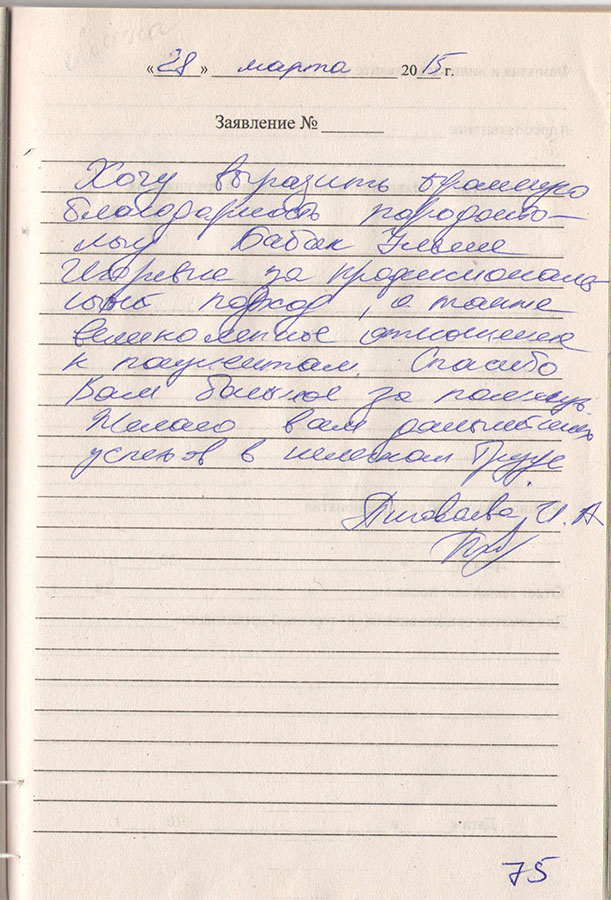 «28» марта 2015 г.
Заявление №
Хочу выразить огромную
благодарность пародонто-
логу Бабак Ульяне
Игоревне за профессиональ
ный подход, а также
великолепное отношение
к пациентам. Спасибо
Вам большое за помощь.
Желаю вам дальнейших
успехов в нелегком труде
И. А
75